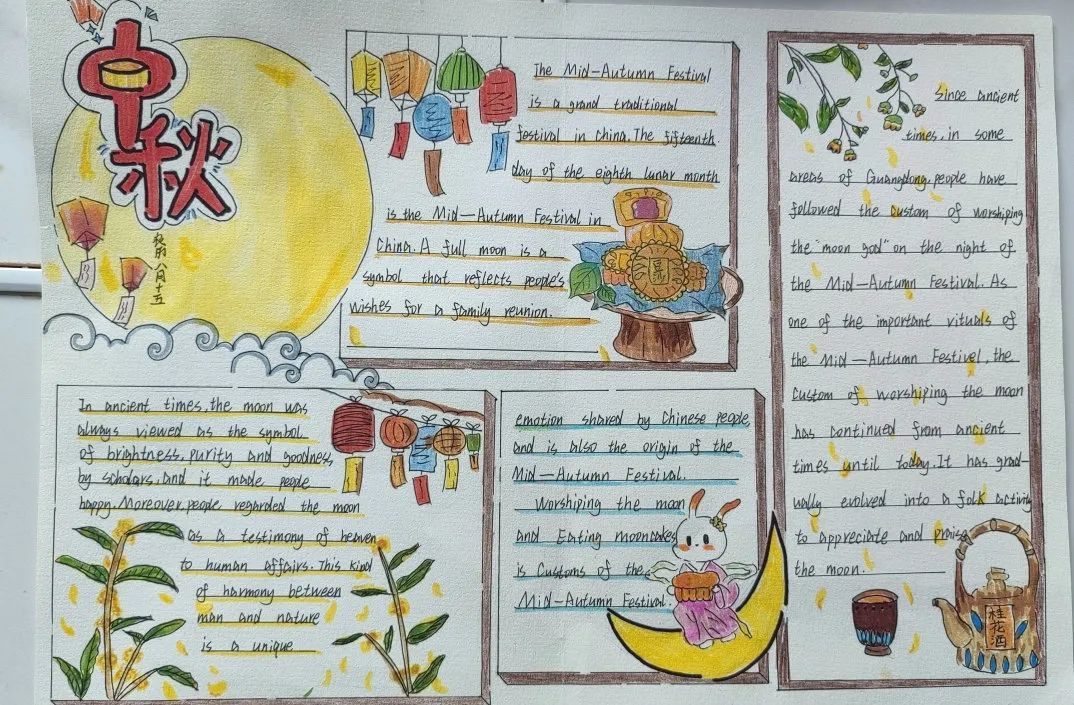 中秋
农历八月十五
The Mid-Autumn Festival
is a grand traditional
festival in China. The fifteenth
day of the eighth lunar month
is the Mid-Autumn Festival in
China. A full moon is a
symbol that reflects people's
wishes for a family reunion.
In ancient times, the moon was
always viewed as the symbol
of brightness, purity and goodness
by scholars. and it made people
happy. Moreover, people regarded the moon
as a testimony of heaven
to human affairs. This kind
of harmony between
man and nature
is a unique
emotion shared by Chinese people
and is also the origin of the
Mid-Autumn Festival.
Worshiping the moon
and Eating mooncakes
is Customs of the
Mid-Autumn Festival.
Since ancient
times, in some
areas of Guangdong, people have
followed the custom of worshiping
the "moon god" on the night of
the Mid-Autumn Festival. As
one of the important vituals of
the Mid-Autumn Festivel, the
custom of worshiping the moon
has continued from ancient
times until today. It has grad-
ually evolved into a folk activity
to appreciate and praise
the moon.
桂花酒